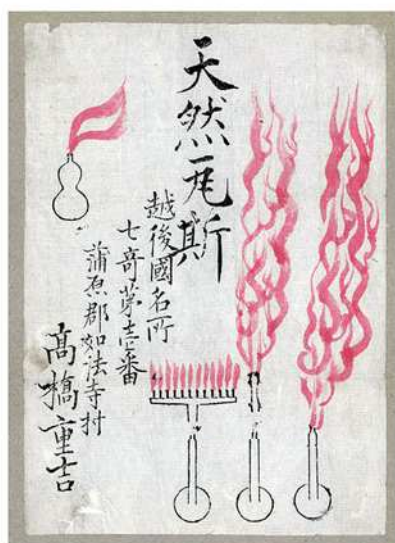 天然瓦斯
越後國名所
七竒苐壱番
蒲原郡如法寺村
髙橋重吉